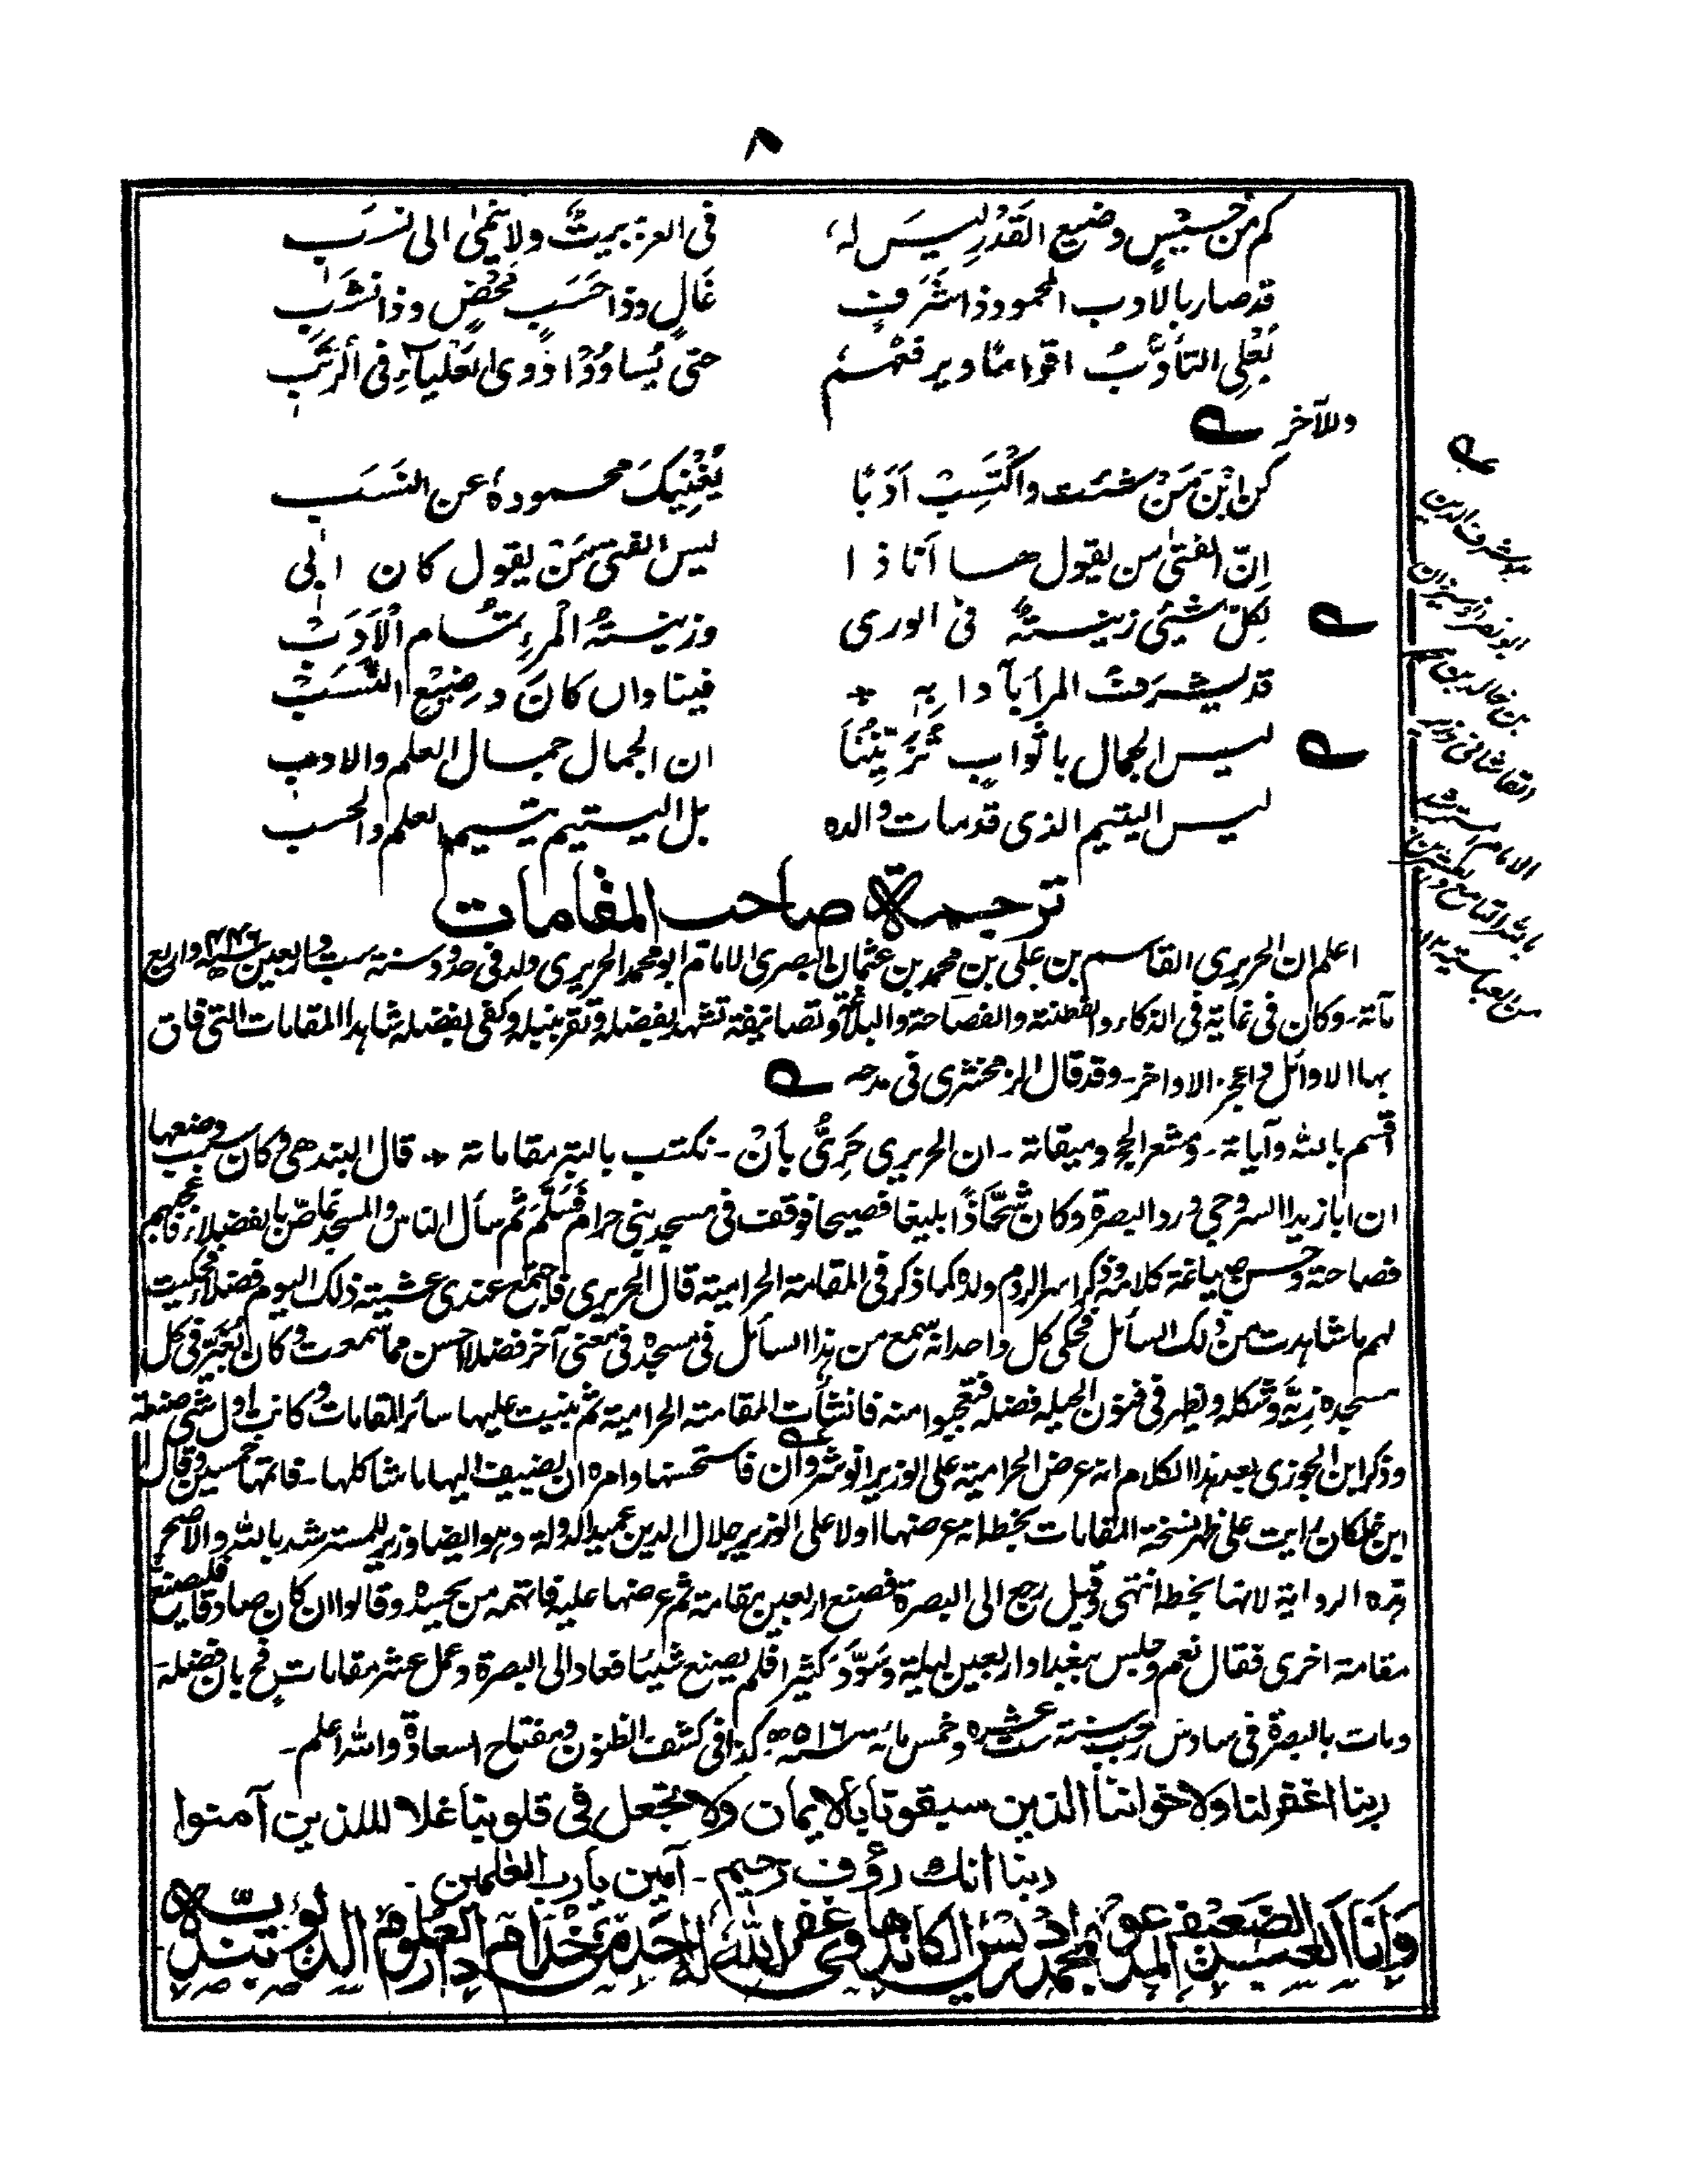 ٨
كم من خسيسٍ وضيع القدر ليسَ له في العز بيتٌ ولا ينمىٰ الى نسَب
قد صار بالادب المحمود ذا شَرفٍ عَالٍ وذا حَسَبٍ محضٍ وذا نشَبٖ
يُعْلِي التأدُّبُ اقوامًا ويرفعهُم حتى يُساوُوْا ذَوِى العَلْيَآءِ في الرُتَبٖ
وللآخر
كُن ابْنَ مَنْ شئت واكْتَسِبْ اَدَبًا يُغْنِيْكَ محمودهُ عن النَسَبٖ
اِنّ الفتىٰ من يقول ها اَنا ذا ليس الفتىٰ مَنْ يقول كان ابي
لِكلّ شيئ زينةٌ في الورى وزينةُ المرءِ تمام الْاَدَبْ
قد يشرفُ المرأ بآدابِه فينا وان كانَ وضيعِ النَّسَبْ
ليس الجمال باثوابٍ تُزَيِّنُنَا ان الجمال جمال العلم والادب
ليس اليتيم الذى قد مات والده بل اليتيم يتيم العلم والحسب
ترجمة صاحب المقامات
اعلم ان الحريرى القاسم بن على بن محمد بن عثمان البصرى الامام ابو محمد الحريرى ولد فى حدود سنة ست واربعين ٤٤٦ واربع
مآئة ـ وكان في غاية في الذكاء والفطنة والفصاحة والبلاغة وتصانيفه تشهد بفضله وتقر بنبله وكفى بفضله شاهدا المقامات التى فاق
بها الاوائل واعجز الاواخر ـ وقد قال الزمخشرى فى مدحه
اقسم بالله وآياته ـ ومشعر الحج وميقاته ـ ان الحريرى حَرِىٌّ بأن ـ نكتب بالتبر مقاماته ٭ قال البندهى وكان سبب وضعها
ان ابا زيد السروجى ورد البصرة وكان شحّاذًا بليغا فصيحا فوقف فى مسجد بنى حرام فَسَلَّمَ ثم سأل الناس والمسجد غاصٌّ بالفضلاء فاعجبهم
فصاحته وحسن صياغة كلامه وذكر اسر الروم ولده كما ذكر فى المقامة الحرامية قال الحريرى فاجتمع عندى عشية ذلك اليوم فضلاء فحكيت
لهم ما شاهدت من ذلك السائل فحكى كل واحد انه سمع من هذا السائل فى مسجده فى معنى آخر فضلا احسن مما سمعت وكان يُغَيِّر فى كل
مسجده زيَّه وشكله ويظهر فى فنون الحيلة فضله فتعجبوا منه فانشأت المقامة الحرامية ثم بنيت عليها سائر المقامات وكانت اول شئ صنعته
وذكر ابن الجوزى بعد هذا الكلام انه عرض الحرامية على الوزير انوشروان فاستحسنها وامره ان يضيف اليها ما شاكلها ـ فاتمها خمسين وقال
ابن خلكان رايت على ظهر نسخة المقامات بخطه انه عرضها اولا على الوزير جلال الدين عميد الدولة وهو ايضا وزير للمسترشد بالله والاصح
هذه الرواية لانها بخطه انتهى وقيل رجع الى البصرة فصنع اربعين مقامة ثم عرضها عليه فاتهمه من يحسده وقالوا ان كان صادقا فليصنع
مقامة اخرى فقال نعم وجلس ببغداد اربعين ليلة وسَوَّدَ كثيرا فلم يصنع شيئا فعاد الى البصرة وعمل عشر مقامات فبان فضله
ومات بالبصرة فى سادس رجب سنة ست عشره وخمس مائة سنه ٥١٦ه كذا فى كشف الظنون ومفتاح السعادة والله اعلم ـ
ربنا اغفر لنا ولاخواننا الذين سبقونا بالايمان ولا تجعل فى قلوبنا غلا للذين آمنوا
ربنا انك رؤف رحيم ـ آمين يارب العٰلمين
وَاَنَا العبد الضعيف محمد ادريس الكاندهلوى غفر الله له احد من خدام دار العلوم الديوبندية
شرف الدين
ابو نصر انوشيروان
بن خالد بن محمد
القاشانى وزير
الامام المسترشد
بالله التاسع والعشرين
من العباسية ١٢